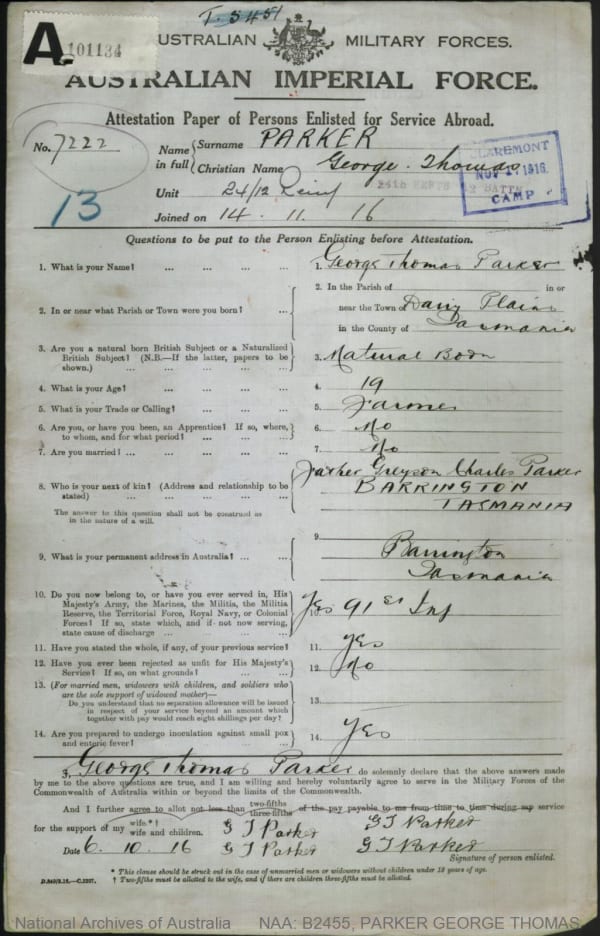 T. 5451
A.
101134
AUSTRALIAN MILITARY FORCES.
AUSTRALIAN IMPERIAL FORCE.
Attestation Paper of Persons Enlisted for Service Abroad.
No. 7222
Name in full { Surname PARKER
Christian Name George Thomas
CLAREMONT
NOV 1916
12 BATTN
CAMP
Unit 24/12 Reinf
13
Joined on 14. 11. 16
Questions to be put to the Person Enlisting before Attestation.
1. What is your Name? ... ... ... ... 1. George Thomas Parker
2. In or near what Parish or Town were you born? ... 2. In the Parish of in or
near the Town of Dairy Plains
in the County of Tasmania
3. Are you a natural born British Subject or a Naturalized
British Subject? (N.B.—If the latter, papers to be
shown.) ... ... ... ... 3. Natural Born
4. What is your Age? ... ... ... ... 4. 19
5. What is your Trade or Calling? ... ... ... 5. Farmer
6. Are you, or have you been, an Apprentice? If so, where,
to whom, and for what period? ... ... 6. No
7. Are you married? ... ... ... ... 7. No
8. Who is your next of kin? (Address and relationship to be
stated) ... ... ... ...
Father Greyson Charles Parker
BARRINGTON
TASMANIA
The answer to this question shall not be construed as
in the nature of a will.
9. What is your permanent address in Australia? ... ... 9. Barrington
Tasmania
10. Do you now belong to, or have you ever served in, His
Majesty's Army, the Marines, the Militia, the Militia
Reserve, the Territorial Force, Royal Navy, or Colonial
Forces? If so, state which, and if not now serving,
state cause of discharge ... ... ... 10. Yes 91st Inf
11. Have you stated the whole, if any, of your previous service? 11. Yes
12. Have you ever been rejected as unfit for His Majesty's
Service? If so, on what grounds? ... ... 12. No
13. (For married men, widowers with children, and soldiers who
are the sole support of widowed mother)—
Do you understand that no separation allowance will be issued
in respect of your service beyond an amount which
together with pay would reach eight shillings per day? 13.
14. Are you prepared to undergo inoculation against small pox
and enteric fever? ... ... ... ... 14. Yes
I, George Thomas Parker do solemnly declare that the above answers made
by me to the above questions are true, and I am willing and hereby voluntarily agree to serve in the Military Forces of the
Commonwealth of Australia within or beyond the limits of the Commonwealth.
And I further agree to allot not less than two-fifths three-fifths of the pay payable to me from time to time during my service
for the support of my wife.*†
wife and children.
G T Parker G T Parker
Date 6. 10. 16 G T Parker G T Parker
Signature of person enlisted.
* This clause should be struck out in the case of unmarried men or widowers without children under 18 years of age.
† Two-fifths must be allotted to the wife, and if there are children three-fifths must be allotted.
National Archives of Australia NAA: B2455, PARKER GEORGE THOMAS